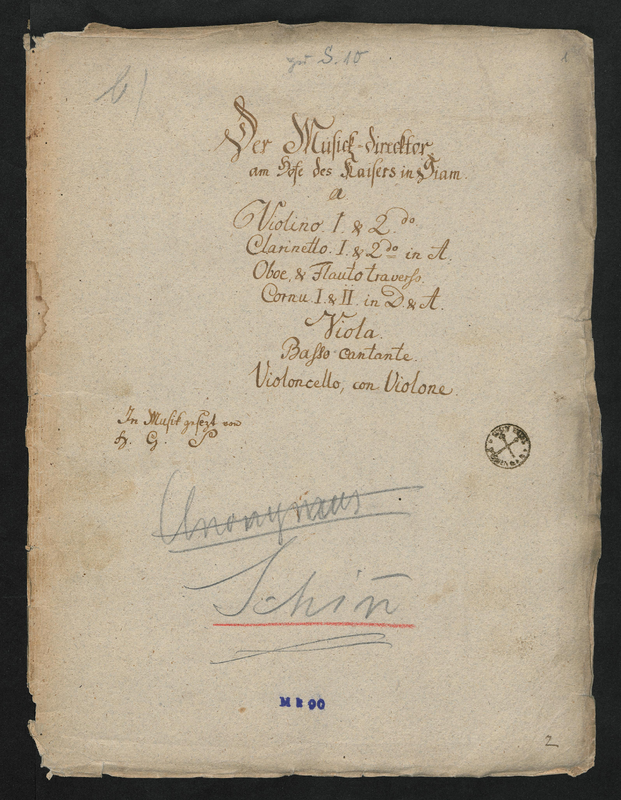 S. 10
1
b)
Der Musick-direcktor
am Hofe des Kaisers in Siam.
a
Violino. I. & 2.do
Clarinetto. I. & 2do in A.
Oboe, & Flauto traverso.
Cornu. I. & II. in D. & A.
Viola.
Basso cantante.
Violoncello, con Violone.
In Musik gesezt von
H. G. S
Anonymus
Schiñ
M E 90
2